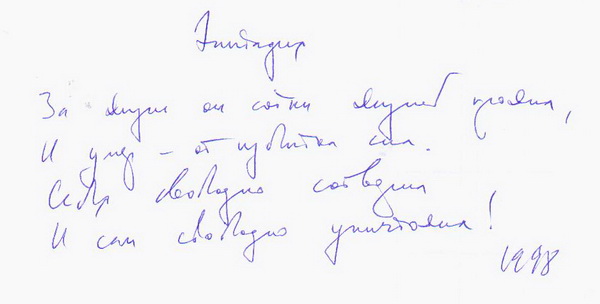 Эпитафия
За жизнь он сотни жизней прожил,
И умер – от избытка сил.
Себя свободно сотворил
И сам свободно уничтожил!
1998